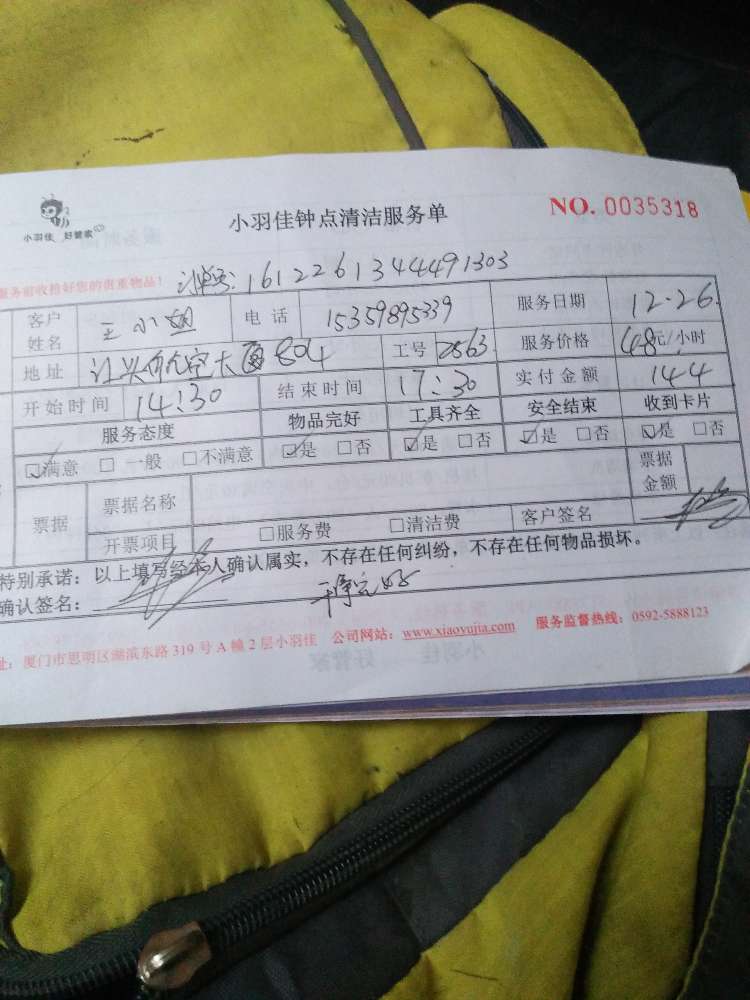 小羽佳 好管家
小羽佳钟点清洁服务单
NO. 0035318
服务前收拾好您的贵重物品!
1612261344491303
客户姓名 王小姐 电话 15359895339 服务日期 12.26
地址 804 工号 2563 服务价格 48元/小时
开始时间 14:30 结束时间 17:30 实付金额 144
服务态度 物品完好 工具齐全 安全结束 收到卡片
☑满意 □一般 □不满意 ☑是 □否 ☑是 □否 ☑是 □否 ☑是 □否
票据 票据名称 票据金额
开票项目 □服务费 □清洁费 客户签名
特别承诺:以上填写经本人确认属实,不存在任何纠纷,不存在任何物品损坏。
确认签名: 干净完好
址:厦门市思明区湖滨东路319号A幢2层小羽佳 公司网站:www.xiaoyujia.com 服务监督热线:0592-5888123